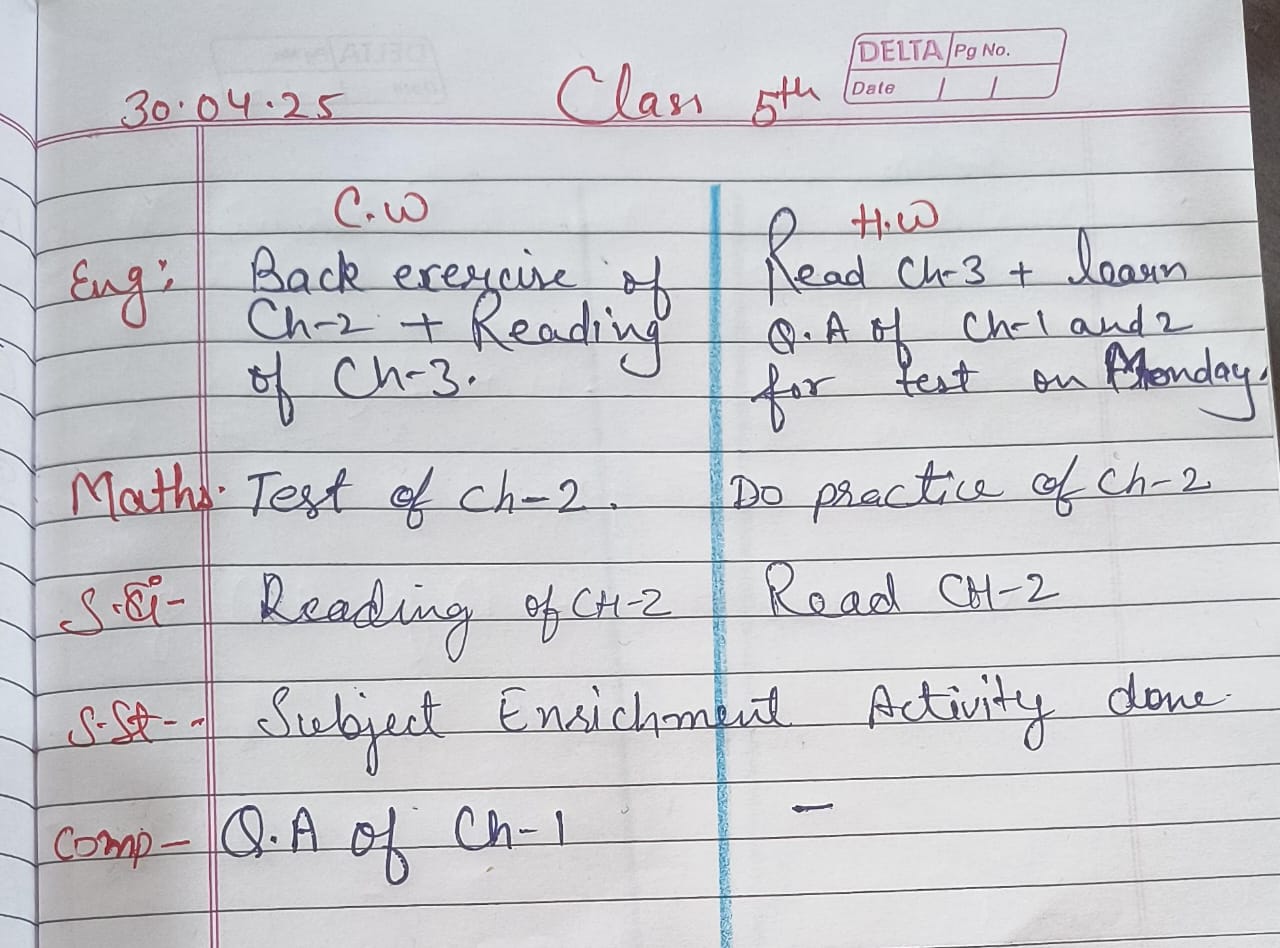 DELTA Pg No.
Date / /
30.04.25 Class 5th
C.W H.W
Eng: Back exercise of Read Ch-3 + learn
Ch-2 + Reading Q.A of Ch-1 and 2
of Ch-3. for test on Monday.
Maths. Test of Ch-2. Do practice of Ch-2
S.Ci- Reading of CH-2 Read CH-2
S.St-- Subject Enrichment Activity done
Comp- Q.A of Ch-1 -